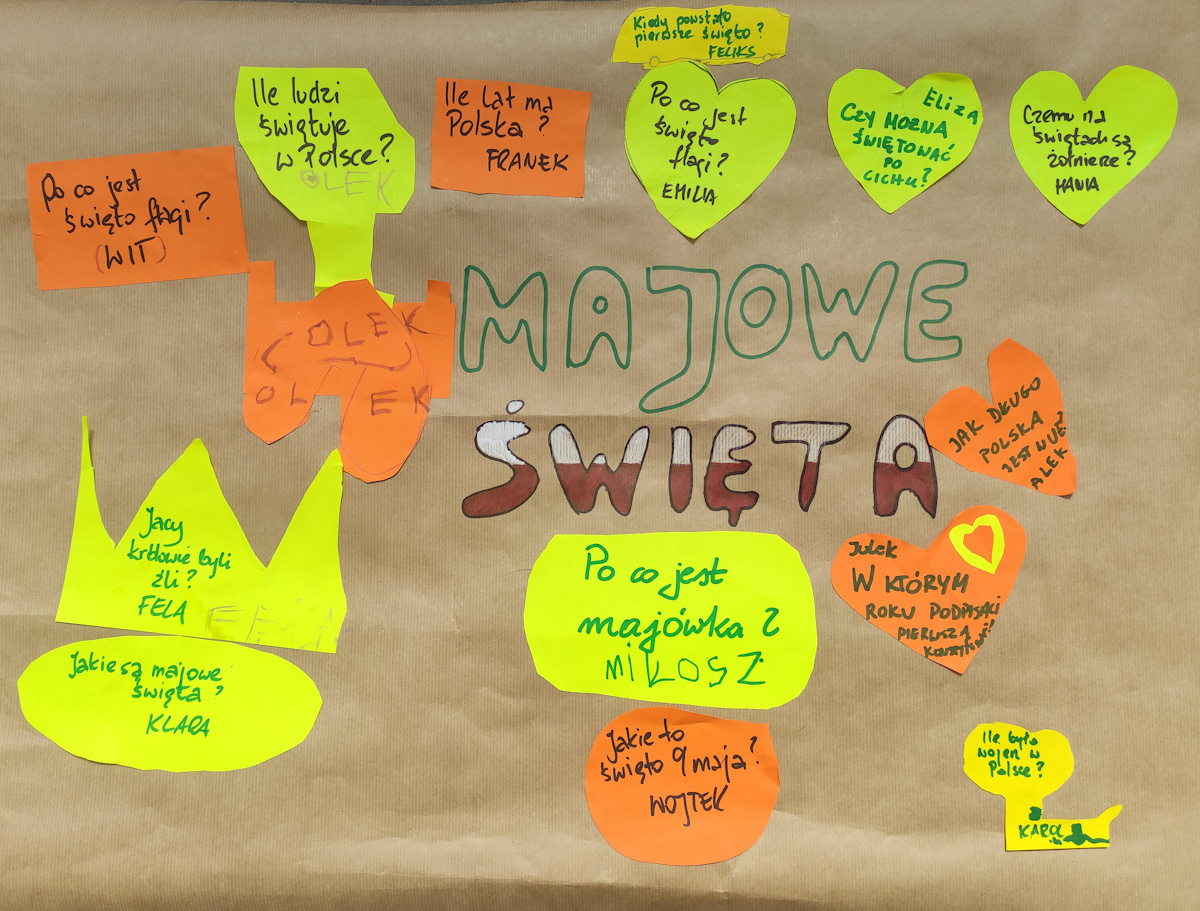 Kiedy powstało
pierwsze święto?
FELIKS
Ile ludzi
świętuje
w Polsce?
OLEK
Ile lat ma
Polska?
FRANEK
Po co jest
święto
flagi?
EMILIA
Eliza
CZY MOŻNA
ŚWIĘTOWAĆ
PO
CICHU?
Czemu na
świętach są
żołnierze?
HANIA
Po co jest
święto flagi?
(WIT)
OLEK
OL EK
MAJOWE
ŚWIĘTA
JAK DŁUGO
POLSKA
JEST W UE?
ALEK
Jacy
królowie byli
źli?
FELA
FELA
Po co jest
majówka?
MIŁOSZ
Julek
W KTÓRYM
ROKU PODPISALI
PIERWSZĄ
Jakie są majowe
święta?
KLARA
Jakie to
święto 9 maja?
WOJTEK
Ile było
wojen w
Polsce?
KAROL